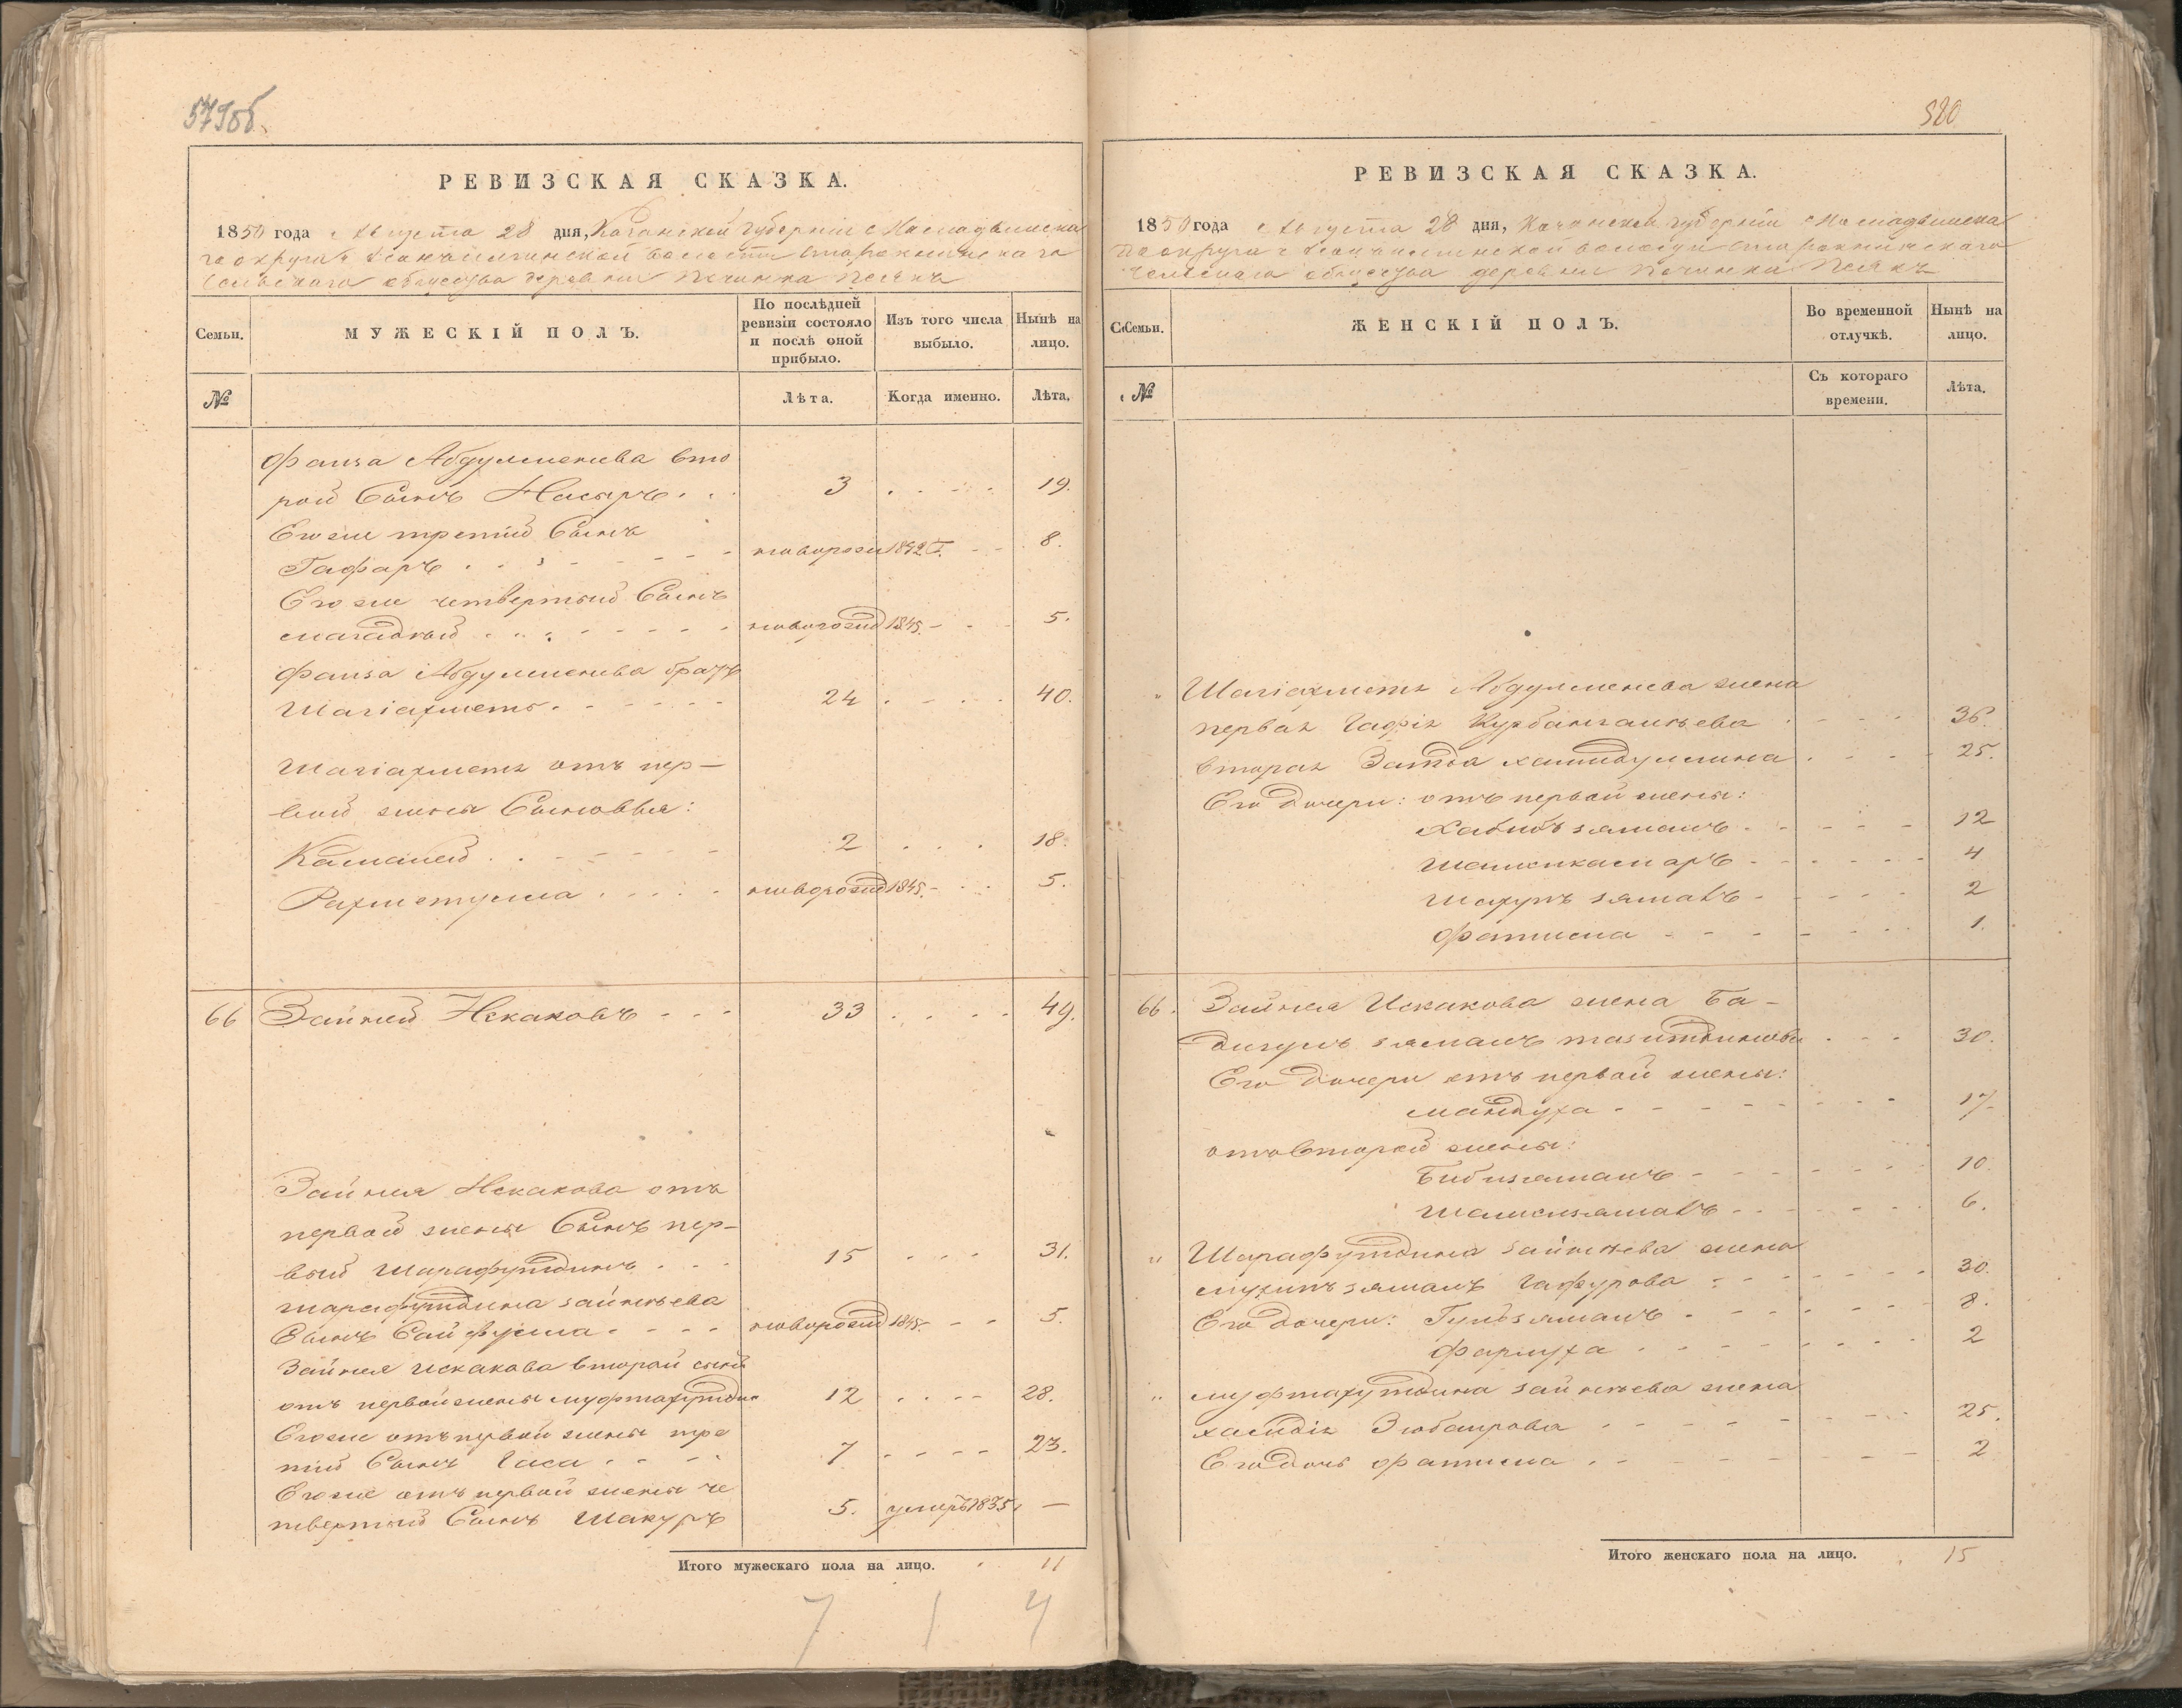 579об.
РЕВИЗСКАЯ СКАЗКА.
1850 года Августа 28 дня, Казанской губернии Мамадышска
го округа волости
сельскаго общества деревни Починка
Семьи.
МУЖЕСКІЙ ПОЛЪ.
По послѣдней ревизіи состояло и послѣ оной прибыло.
Изъ того числа выбыло.
Нынѣ на лицо.
№
Лѣта.
Когда именно.
Лѣта.
Фаиза Абдулменева вто
рой Сынъ Насыръ 3 19.
Егоже третій Сынъ
Гафаръ новорож 1842 г. 8.
Егоже четвертый Сынъ
новорожд 1845. 5.
Фаиза Абдулменева братъ
Шагіахметъ 24 40.
Шагіахметя отъ пер-
вой жены Сыновья:
Камалей 2 18.
Рахметулла новорожд 1845. 5.
66 Зайней Искаковъ 33 49.
Зайнея Искакова отъ
первой жены Сынъ пер-
вый Шарафутдинъ 15 31.
Шарафутдина Зайнеева
Сынъ Сайфулла новорожд 1845. 5.
Зайнея Искакова второй сынъ
отъ первой жены Муфтахутдин 12 28.
Егоже отъ первой жены тре
тій Сынъ Гаса 7 23.
Егоже отъ первой жены че
твертый Сынъ Шакуръ 5. умеръ 1835. —
Итого мужескаго пола на лицо. 11
7 1 4
580
РЕВИЗСКАЯ СКАЗКА.
1850 года Августа 28 дня, Казанской губерніи Мамадышска
го округа волости
сельскаго общества деревни Починка
Семьи.
ЖЕНСКІЙ ПОЛЪ.
Во временной отлучкѣ.
Нынѣ на лицо.
№
Съ котораго времени.
Лѣта.
" Шагіахметя Абдулменева жена
первая Гафія Курбангалеева 36.
вторая Хамидуллина 25.
Его дочери: отъ первой жены:
Хабибъзяманъ 12
Шамсикамаръ 4
Махупъ зямалъ 2
Фатима 1.
66. Зайнея Искакова жена Ба-
дигулъ зяманъ 30.
Его дочери отъ первой жены:
Мандуха 17
отъ второй жены:
Бибизяманъ 10.
Шамсизямалъ 6.
" Шарафутдина Зайнеева жена
зямалъ Гафурова 30.
Его дочери: Гульзяманъ 8.
Фархуха 2
" Муфтахутдина Зайнеева жена
Хамдія Зюбаирова 25.
Его дочь Фатима 2
Итого женскаго пола на лицо. 15